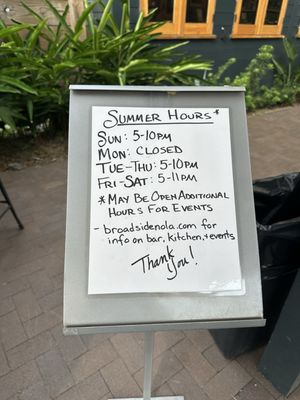 SUMMER HOURS*
SUN: 5-10PM
MON: CLOSED
TUE-THU: 5-10PM
FRI-SAT: 5-11PM
*MAY BE OPEN ADDITIONAL
HOURS FOR EVENTS
- broadsidenola.com for
info on bar, kitchen, + events
Thank You!